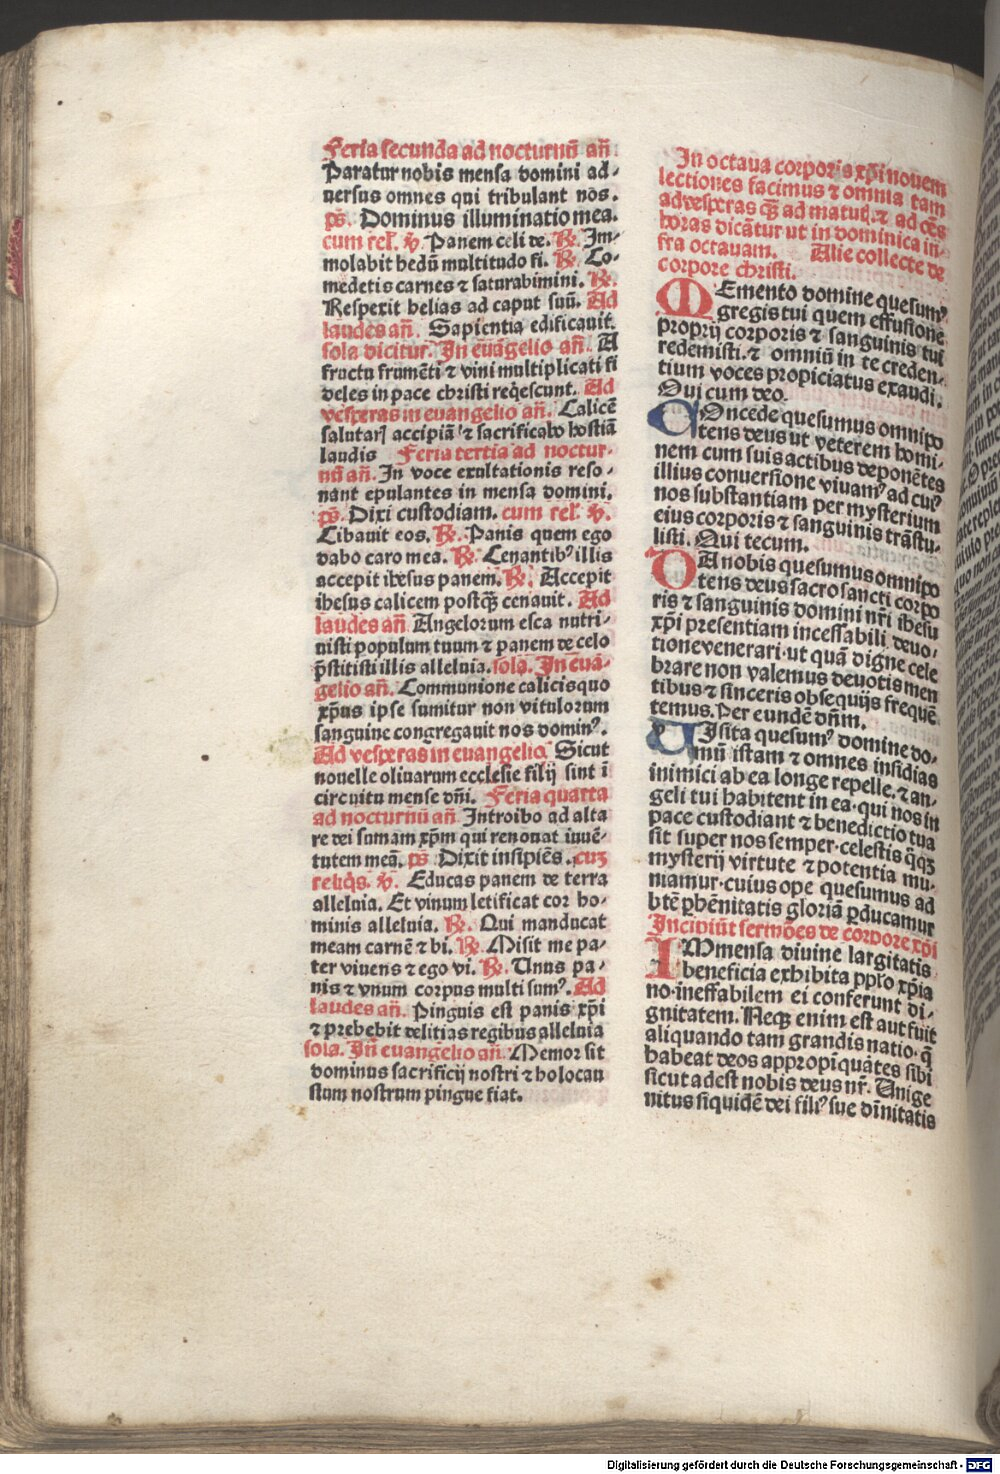 Feria secunda ad nocturnū an̄.
Paratur nobis mensa domini ad⸗
uersus omnes qui tribulant nos.
p̄s. Dominus illuminatio mea.
cum rel'. ℣. Panem celi de. ℟. Im⸗
molabit hedū multitudo fi. ℟. Co⸗
medetis carnes ⁊ saturabimini. ℟.
Respexit helias ad caput suū. Ad
laudes an̄. Sapientia edificauit.
sola dicitur. In euāgelio an̄. A
fructu frumēti ⁊ vini multiplicati fi
deles in pace christi reqescunt. Ad
vesperas in euangelio an̄. Calicē
salutarꝭ accipiā ⁊ sacrificabo hostiā
laudis Feria tertia ad noctur⸗
nū an̄. In voce exultationis reso⸗
nant epulantes in mensa domini.
p̄s. Dixi custodiam. cum rel'. ℣.
Cibauit eos. ℟. Panis quem ego
dabo caro mea. ℟. Cenantibꝰ illis
accepit ihesus panem. ℟. Accepit
ihesus calicem postqꝫ cenauit. Ad
laudes an̄ Angelorum esca nutri⸗
uisti populum tuum ⁊ panem de celo
p̄stitisti illis alleluia. sola. In euā⸗
gelio an̄. Communione calicis quo
xp̄us ipse sumitur non vitulorum
sanguine congregauit nos dominꝰ.
Ad vesperas in euangelio. Sicut
nouelle oliuarum ecclesie filij sint ī
circuitu mense dn̄i. Feria quarta
ad nocturnū an̄ Introibo ad alta
re dei sumam xp̄m qui renouat iuuē⸗
tutem meā. p̄s Dixit insipiēs. cuꝫ
reliq̄s. ℣. Educas panem de terra
alleluia. Et vinum letificat cor ho⸗
minis alleluia. ℟. Qui manducat
meam carnē ⁊ bi. ℟. Misit me pa⸗
ter viuens ⁊ ego vi. ℟. Unus pa⸗
nis ⁊ vnum corpus multi sumꝰ. Ad
laudes an̄. Pinguis est panis xp̄i
⁊ prebebit delitias regibus alleluia
sola. In̄ euangelio an̄. Memor sit
dominus sacrificij nostri ⁊ holocau
stum nostrum pingue fiat.
In octaua corporis xp̄i nouem
lectiones facimus ⁊ omnia tam
ad vesperas qꝫ ad matut. ⁊ ad oēs
horas dicātur ut in dominica in⸗
fra octauam. Alie collecte de
corpore christi.
MEmento domine quesumꝰ
gregis tui quem effusione
proprij corporis ⁊ sanguinis tui
redemisti. ⁊ omniū in te creden⸗
tium voces propiciatus exaudi.
Qui cum deo.
COncede quesumus omnipo
tens deus ut veterem homi⸗
nem cum suis actibus deponētes
illius conuersione viuamꝰ ad cuiꝰ
nos substantiam per mysterium
eius corporis ⁊ sanguinis trāstu⸗
listi. Qui tecum.
DA nobis quesumus omnipo
tens deus sacrosancti corpo
ris ⁊ sanguinis domini nr̄i ihesu
xp̄i presentiam ineffabili deuo⸗
tione venerari. ut quā digne cele
brare non valemus deuotis men
tibus ⁊ sinceris obsequijs frequē
temus. Per eundē dn̄m.
UIsita quesumꝰ domine do⸗
mū istam ⁊ omnes insidias
inimici ab ea longe repelle. ⁊ an⸗
geli tui habitent in ea. qui nos in
pace custodiant ⁊ benedictio tua
sit super nos semper. celestis q̄qꝫ
mysterij virtute ⁊ potentia mu⸗
niamur. cuius ope quesumus ad
btē ꝑhēnitatis gloriā ꝑducamur
Incipiūt sermōes de corpore xp̄i
IMmensa diuine largitatis
beneficia exhibita pplo xp̄ia
no. ineffabilem ei conferunt di⸗
gnitatem. Neqꝫ enim est aut fuit
aliquando tam grandis natio. q̄
habeat deos appropīquātes sibi
sicut adest nobis deus nr̄. Unige
nitus siquidē dei filiꝰ sue dīnitatis
Digitalisierung gefördert durch die Deutsche Forschungsgemeinschaft - DFG